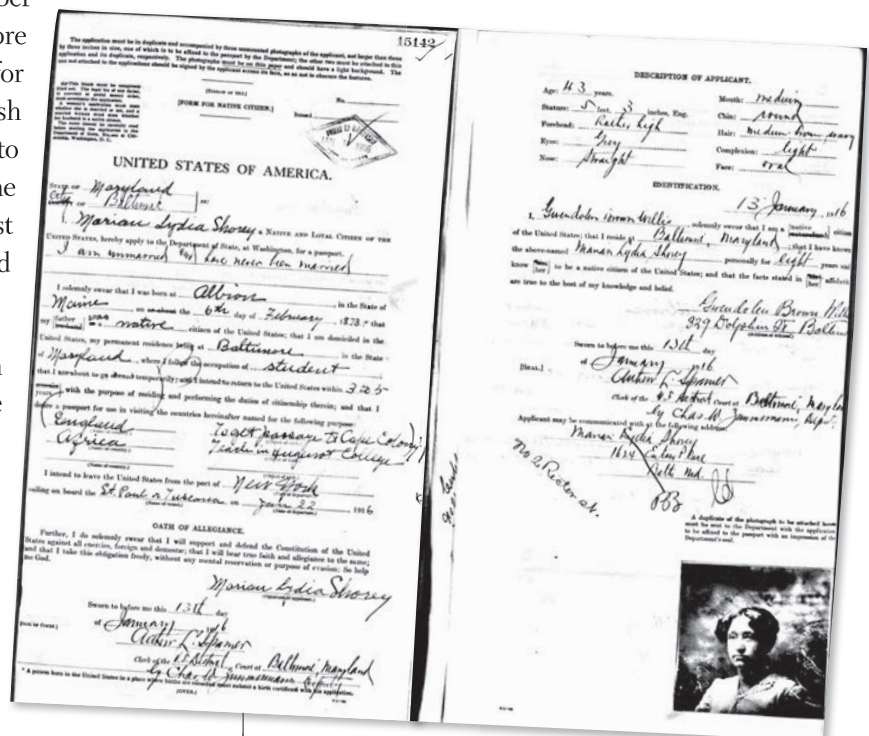 ore
for
sh
to
st
15142
The application must be in duplicate and accompanied by three unmounted photographs of the applicant, not larger than three
by three inches in size, one of which is to be affixed to the passport by the Department; the other two must be attached to the
application and its duplicate, respectively. The photographs must be on thin paper and should have a light background. The
one not attached to the applications should be signed by the applicant across its face, so as not to obscure the features.
[FORM FOR NATIVE CITIZEN.]
No.
Issued
UNITED STATES OF AMERICA.
STATE OF Maryland
City OF Baltimore
I, Marian Lydia Shorey, A NATIVE AND LOYAL CITIZEN OF THE
UNITED STATES, hereby apply to the Department of State, at Washington, for a passport.
I am unmarried have never been married
I solemnly swear that I was born at Albion, in the State of
Maine on or about the 6th day of February, 1873, that
my father is a native citizen of the United States; that I am domiciled in the
United States, my permanent residence being at Baltimore in the State
of Maryland, where I follow the occupation of student
that I am about to go abroad temporarily; and I intend to return to the United States within 3 to 5
years with the purpose of residing and performing the duties of citizenship therein; and that I
desire a passport for use in visiting the countries hereinafter named for the following purpose:
England To get passage to Cape Colony
Africa Teach in Huguenot College
I intend to leave the United States from the port of New York
sailing on board the St. Paul or Tuscania on Jan 22, 1916
OATH OF ALLEGIANCE.
Further, I do solemnly swear that I will support and defend the Constitution of the United
States against all enemies, foreign and domestic; that I will bear true faith and allegiance to the same;
and that I take this obligation freely, without any mental reservation or purpose of evasion: So help
me God.
Marian Lydia Shorey
Sworn to before me this 13th day
of January 1916
Arthur L. Spamer
Clerk of the U.S. District Court of Baltimore, Maryland
by Chas. W. Zimmermann Deputy
* A person born in the United States in a place where births are recorded must submit a birth certificate with his application.
(OVER.)
DESCRIPTION OF APPLICANT.
Age: 43 years. Mouth: medium
Stature: 5 feet, 3 inches, Eng. Chin: round
Forehead: Rather high Hair: medium brown, wavy
Eyes: Grey Complexion: light
Nose: Straight Face: oval
IDENTIFICATION.
13 January, 1916
I, Gwendolen Brown Willis, solemnly swear that I am a native citizen
of the United States; that I reside at Baltimore, Maryland; that I have known
the above-named Marian Lydia Shorey personally for eight years and
know her to be a native citizen of the United States; and that the facts stated in her affidavit
are true to the best of my knowledge and belief.
Gwendolen Brown Willis
929 Dolphin St Baltim
Sworn to before me this 13th day
[SEAL.] of January 1916
Arthur L. Spamer
Clerk of the U.S. District Court of Baltimore, Maryland
by Chas. W. Zimmermann Deputy
Applicant may be communicated with at the following address:
Marian Lydia Shorey
1624 Place
Balto Md.
No 2 Rector St.
A duplicate of the photograph to be attached hereto
must be sent to the Department with the application
to be affixed to the passport with an impression of the
Department's seal.